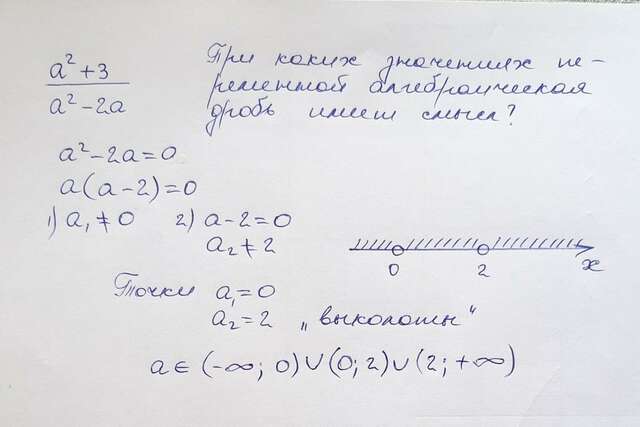 a² + 3
a² - 2a
При каких значениях пе-
ременной алгебраическая
дробь имеет смысл?
a² - 2a = 0
a(a - 2) = 0
1) a₁ ≠ 0 2) a - 2 = 0
a₂ ≠ 2
0 2 x
Точки a₁ = 0
a₂ = 2 „выколоты"
a ∈ (-∞; 0) ∪ (0; 2) ∪ (2; +∞)